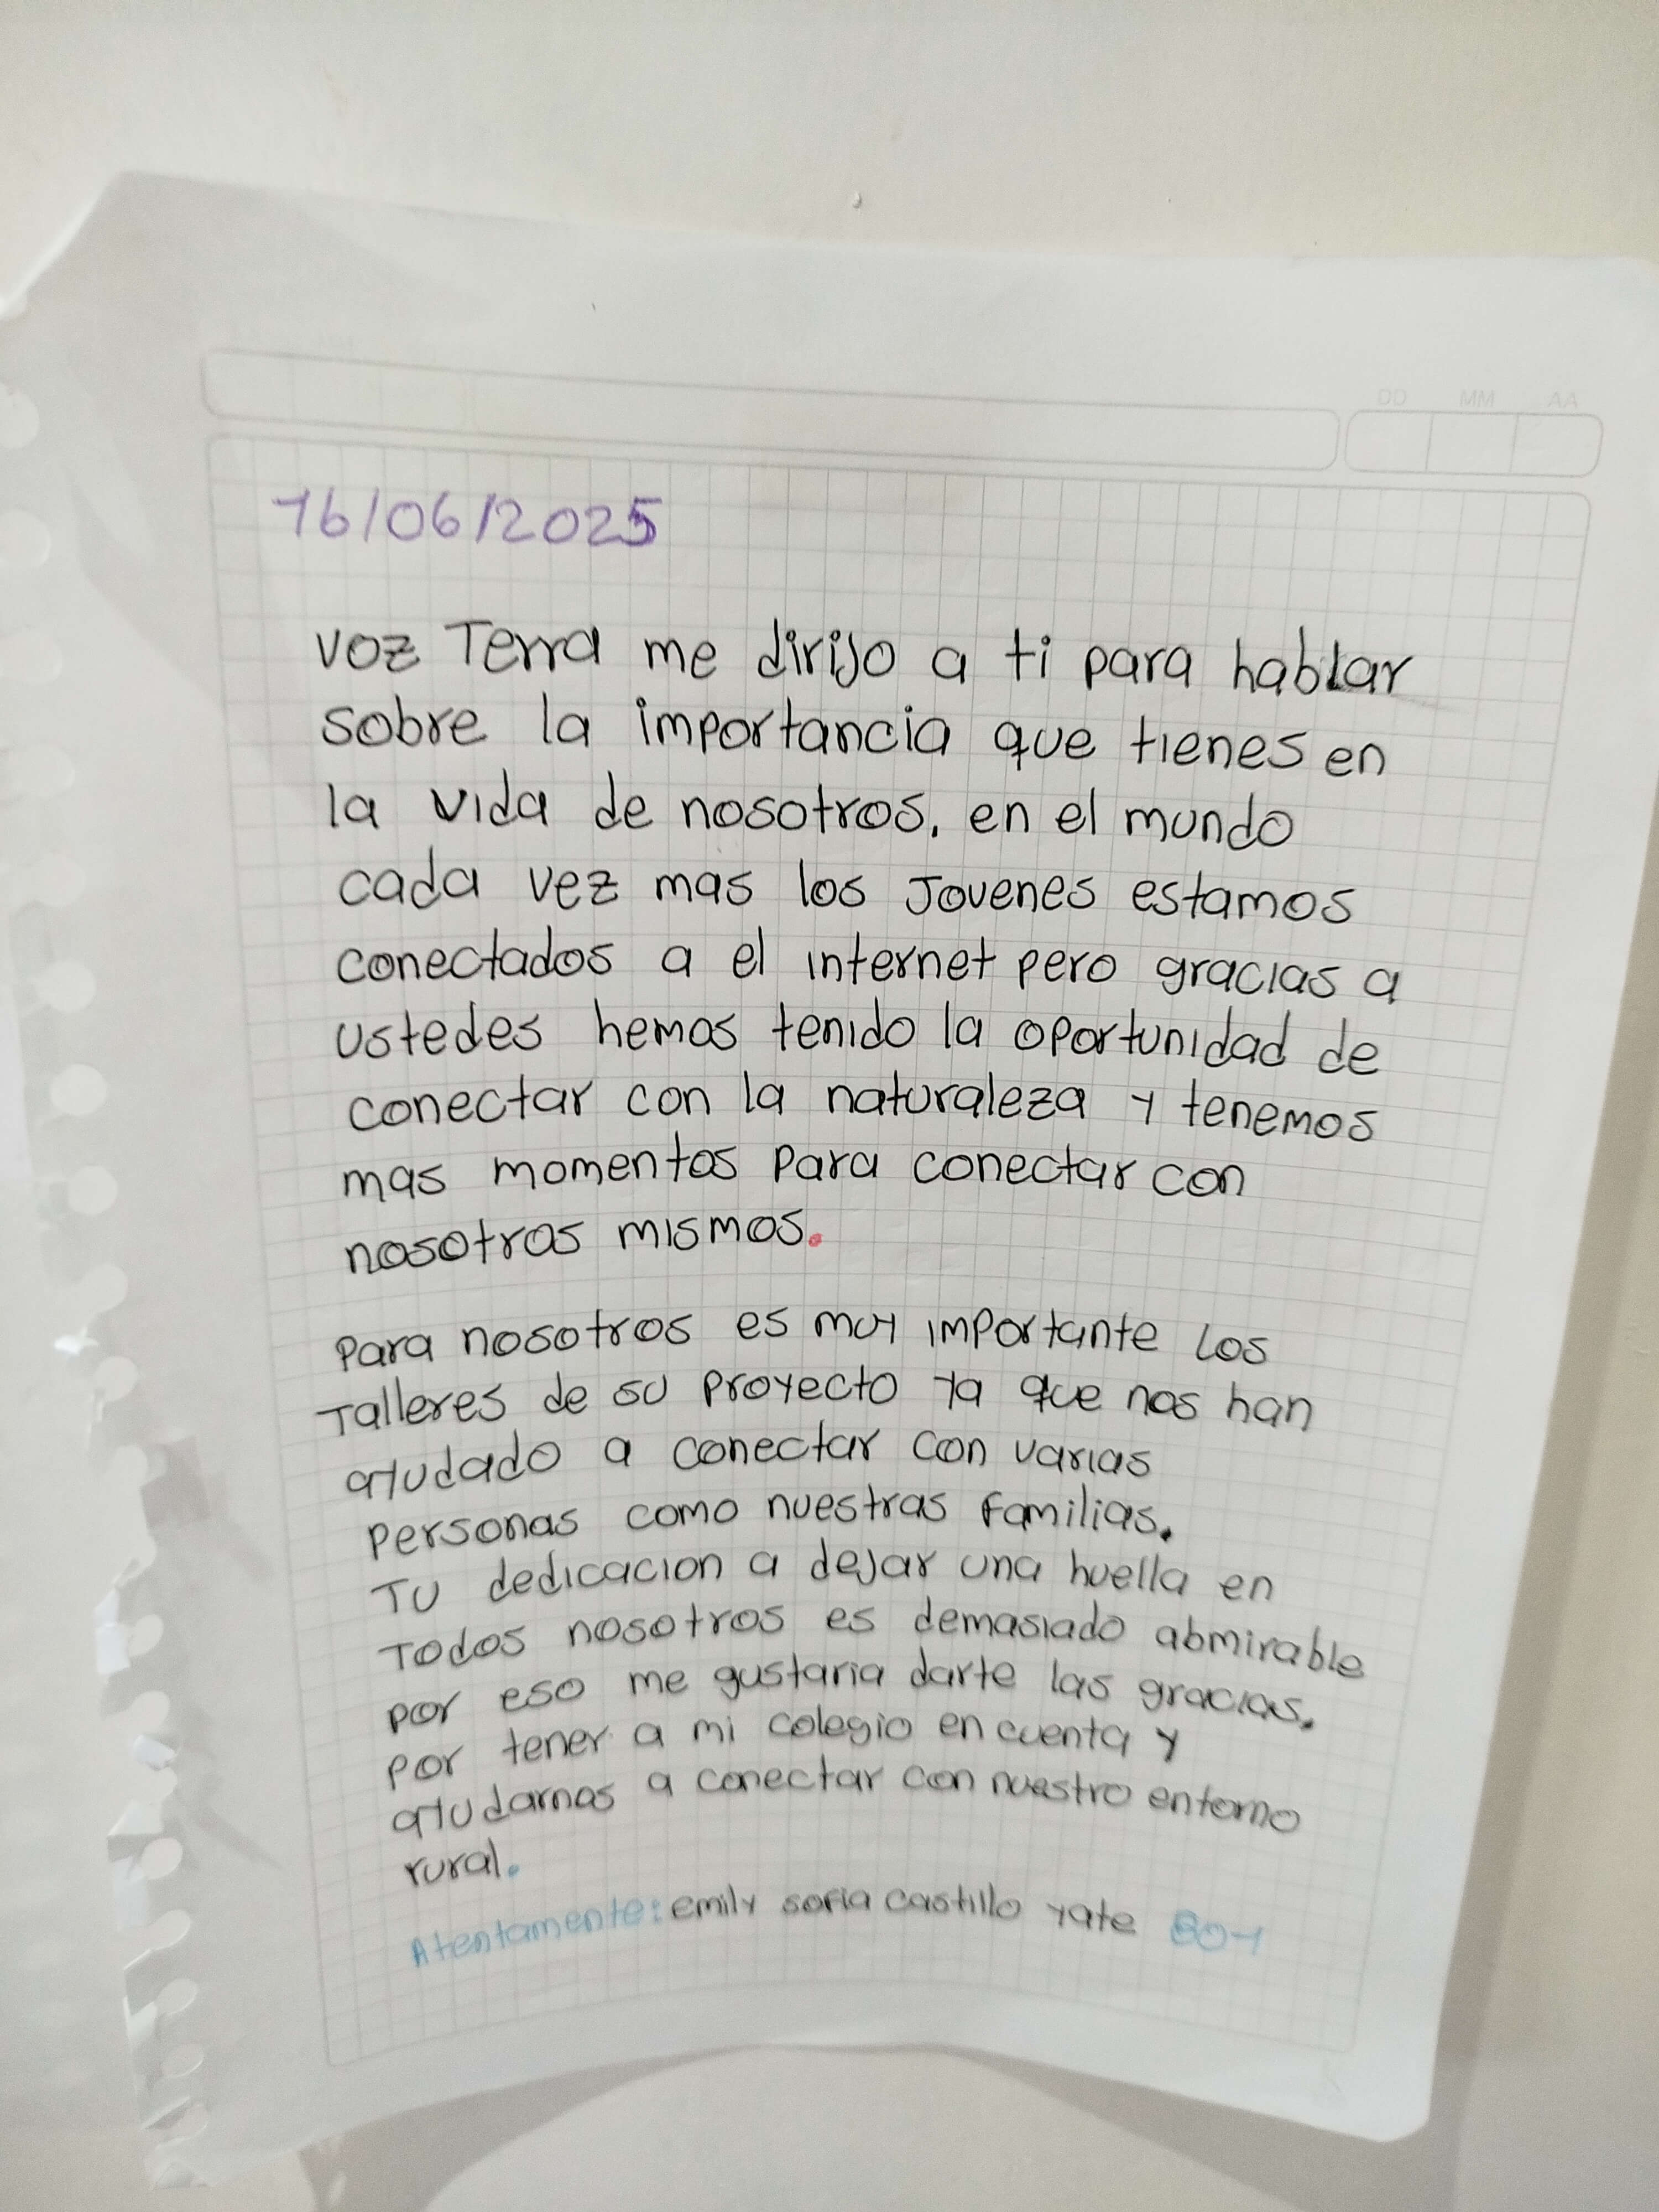 DD MM AA
16/06/2025
voz Terra me dirijo a ti para hablar
sobre la importancia que tienes en
la vida de nosotros, en el mundo
cada vez mas los Jovenes estamos
conectados a el internet pero gracias a
ustedes hemos tenido la oportunidad de
conectar con la naturaleza y tenemos
mas momentos para conectar con
nosotros mismos.
para nosotros es muy importante los
Talleres de su proyecto ya que nos han
ayudado a conectar con varias
personas como nuestras familias.
TU dedicacion a dejar una huella en
Todos nosotros es demasiado abmirable
por eso me gustaria darte las gracias.
por tener a mi colegio en cuenta y
ayudarnos a conectar con nuestro entorno
rural.
Atentamente: emily sofia castillo yate 80-1